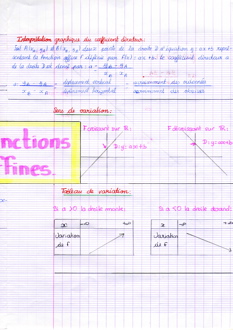 Interprétation graphique du coefficient directeur:
Soit A(xA, yA) et B(xB, yB) deux points de la droite D d'équation y = ax+b représentant la fonction affine f définie par f(x) = ax+b. Le coefficient directeur a de la droite D est donné par: a = yB - yA / xB - xA
= déplacement vertical / déplacement horizontal = accroissement des ordonnées / accroissement des abscisses
Sens de variation:
nctions
ffines.
F croissant sur R:
F décroissant sur R:
D: y = ax+b
D: y = ax+b
Tableau de variation:
Si a > 0 la droite monte:
Si a < 0 la droite descend:
x -∞ +∞
x -∞
Variation de f
Variation de f